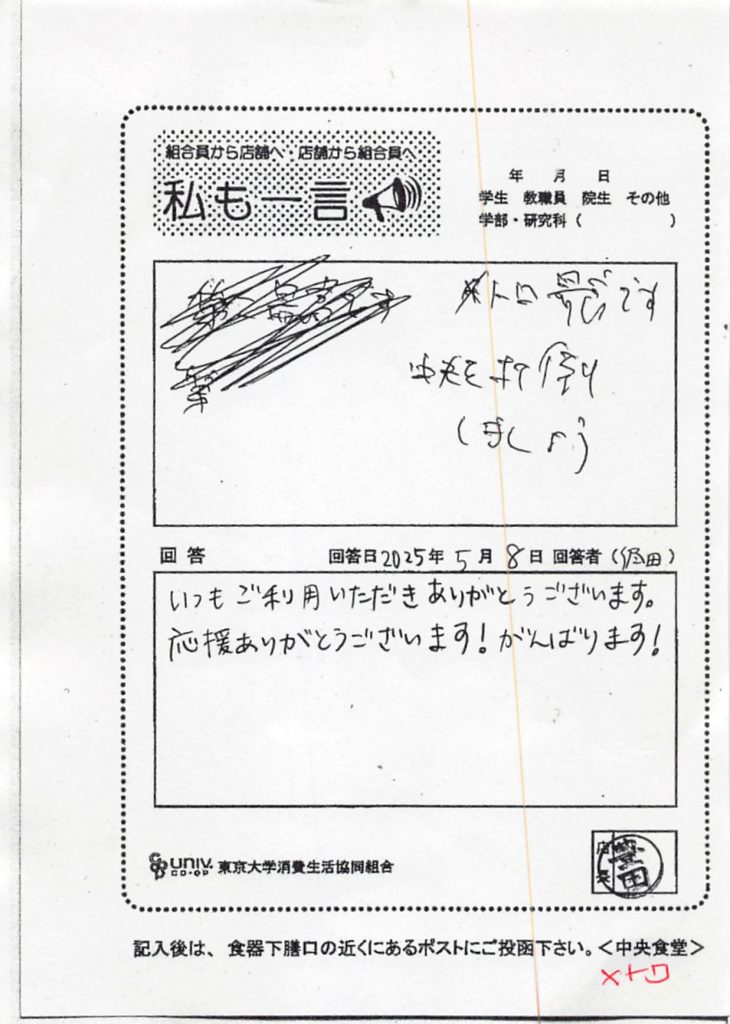 組合員から店舗へ・店舗から組合員へ
私も一言
年 月 日
学生 教職員 院生 その他
学部・研究科( )
メトロ最高です
中央を打倒
しましょう
回答 回答日2025年5月8日 回答者( 田)
いつもご利用いただきありがとうございます。
応援ありがとうございます!がんばります!
UNIV.
CO-OP
東京大学消費生活協同組合
店長
記入後は、食器下膳口の近くにあるポストにご投函下さい。<中央食堂>
メトロ